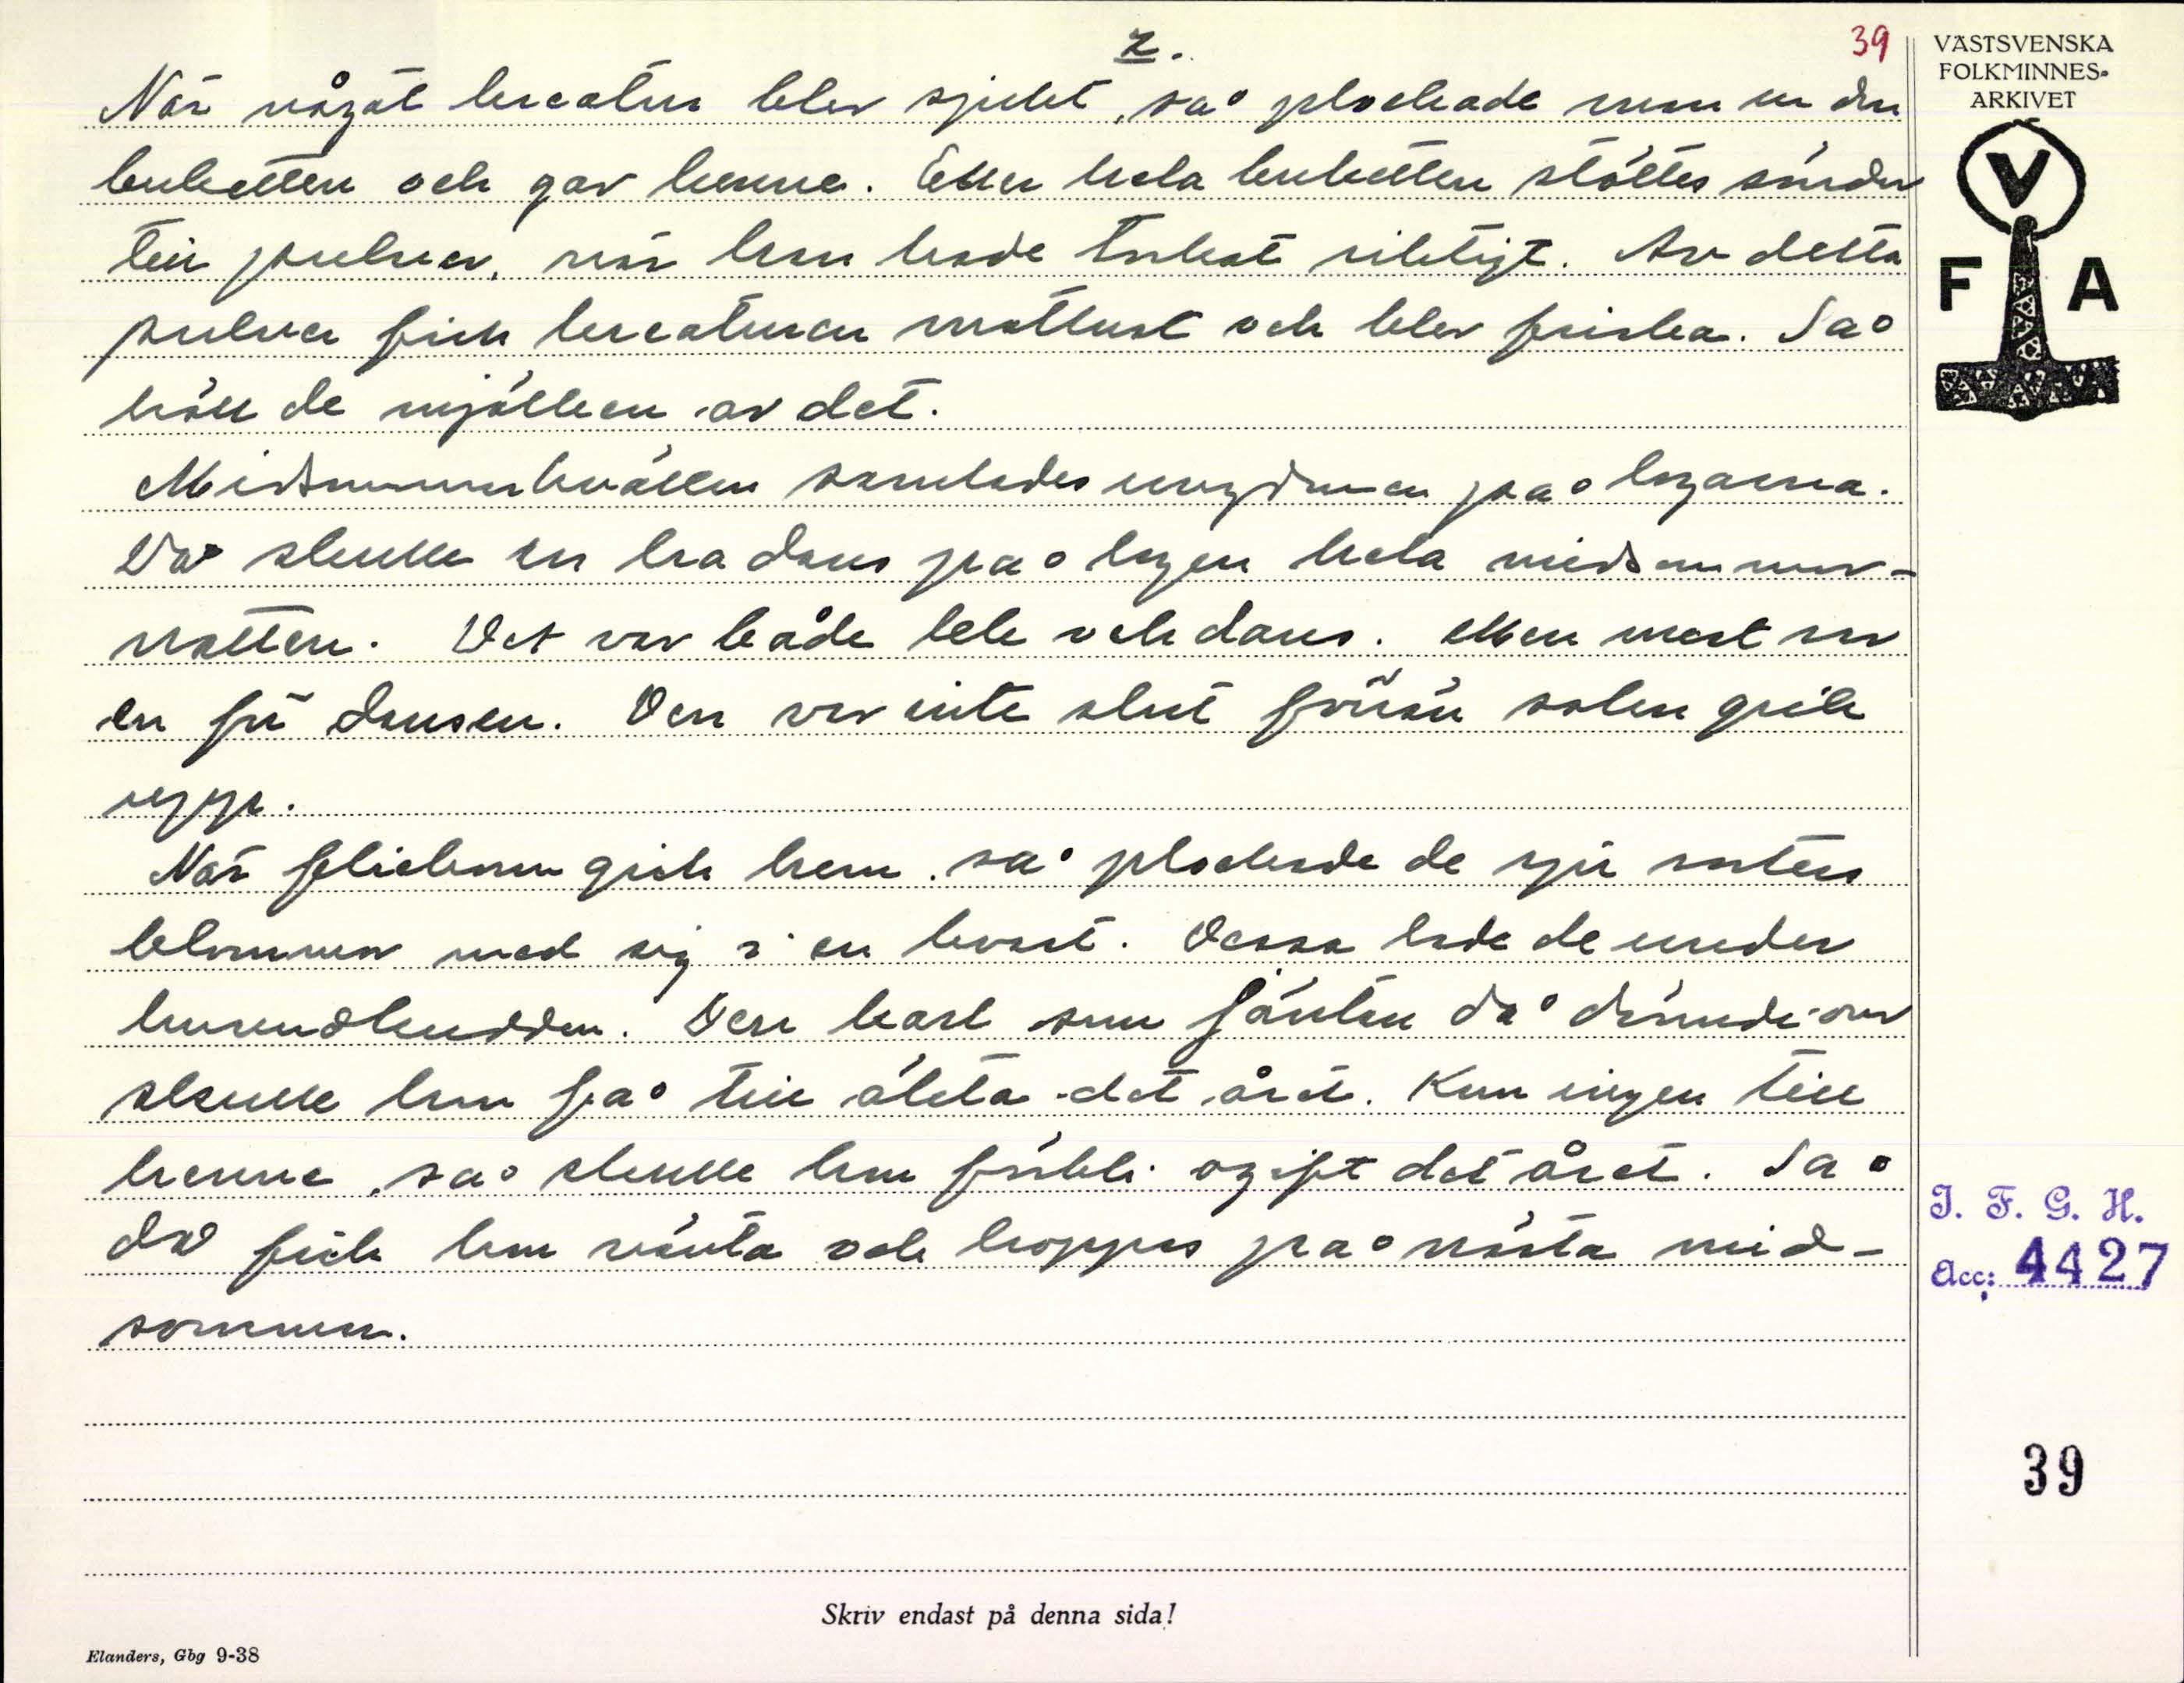 2.
39
När något kreatur blev sjukt, så plockade man ur den
buketten och gav henne. Eller hela buketten stöttes sönder
till pulver, när hon hade torkat riktigt. Av detta
pulver fick kreaturen matlust och blev friska. Så
höll de mjölken av det.
Midsommerkvällen samlades ungdomen på logarna.
Då skulle en ha dans på logen hela midsommer-
natten. Det var både lek och dans. Men mest var
en för dansen. Den var inte slut förrän solen gick
upp.
När flickorna gick hem, så plockade de sju sorters
blommor med sig i en kvast. Dessa lade de under
huvudkudden. Den karl som jäntan då drömde om
skulle hon få till äkta det året. Kom ingen till
henne, så skulle hon förbli ogift det året. Så
då fick hon vänta och hoppas på nästa mid-
sommer.
Skriv endast på denna sida!
Elanders, Gbg 9-38
VÄSTSVENSKA
FOLKMINNES-
ARKIVET
V
F A
I. F. G. H.
Acc: 4427
39